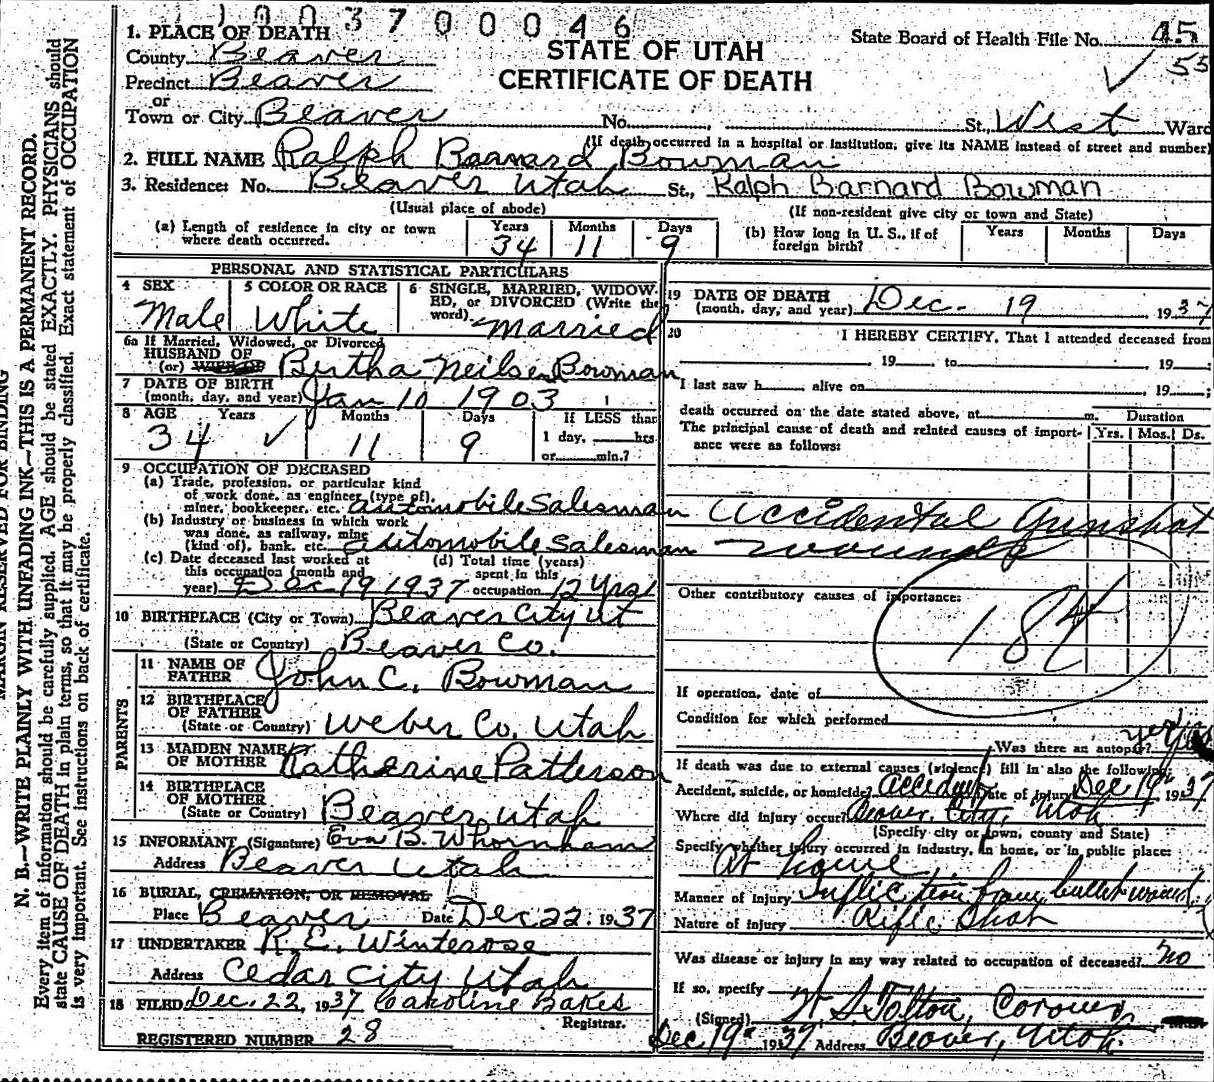 10037000 46
1. PLACE OF DEATH
STATE OF UTAH
CERTIFICATE OF DEATH
State Board of Health File No. 45
55
County Beaver
Precinct Beaver
or
Town or City Beaver No. St., West Ward
(If death occurred in a hospital or institution, give its NAME instead of street and number)
2. FULL NAME Ralph Barnard Bowman
3. Residence: No. Beaver Utah St., Ralph Barnard Bowman
(Usual place of abode) (If non-resident give city or town and State)
(a) Length of residence in city or town where death occurred. Years 34 Months 11 Days 9
(b) How long in U. S., if of foreign birth? Years Months Days
PERSONAL AND STATISTICAL PARTICULARS
4 SEX Male
5 COLOR OR RACE White
6 SINGLE, MARRIED, WIDOW-
ED, or DIVORCED (Write the
word) Married
6a If Married, Widowed, or Divorced
HUSBAND OF
(or) WIFE OF Bertha Neilsen Bowman
7 DATE OF BIRTH
(month, day, and year) Jan 10 1903
8 AGE Years Months Days If LESS than
34 11 9 1 day, hrs
or min.?
9 OCCUPATION OF DECEASED
(a) Trade, profession, or particular kind
of work done, as engineer (type of),
miner, bookkeeper, etc. automobile salesman
(b) Industry or business in which work
was done, as railway, mine
(kind of), bank, etc. automobile salesman
(c) Date deceased last worked at
this occupation (month and
year) Dec 19 1937
(d) Total time (years)
spent in this
occupation 12 yrs
10 BIRTHPLACE (City or Town) Beaver City Ut
(State or County) Beaver Co.
PARENTS
11 NAME OF
FATHER John C. Bowman
12 BIRTHPLACE
OF FATHER
(State or Country) Weber Co. Utah
13 MAIDEN NAME
OF MOTHER Katherine Patterson
14 BIRTHPLACE
OF MOTHER
(State or Country) Beaver Utah
15 INFORMANT (Signature) Eva B.
Address Beaver Utah
16 BURIAL, CREMATION, OR REMOVAL
Place Beaver Date Dec 22 1937
17 UNDERTAKER R. E. Winterose
Address Cedar City Utah
18 FILED Dec. 22, 1937 Caroline Bakes
Registrar.
REGISTERED NUMBER 28
19 DATE OF DEATH
(month, day, and year) Dec. 19 1937
20 I HEREBY CERTIFY, That I attended deceased from
19 to 19 ;
I last saw h alive on 19 ;
death occurred on the date stated above, at m. Duration
The principal cause of death and related causes of import-
ance were as follows: Yrs. Mos. Ds.
Accidental Gunshot
wounds
Other contributory causes of importance:
184
If operation, date of
Condition for which performed
Was there an autopsy? yes
If death was due to external causes (violence) fill in also the following:
Accident, suicide, or homicide? Accident Date of injury Dec 19th 1937
Where did injury occur? Beaver, City, Utah
(Specify city or town, county and State)
Specify whether injury occurred in industry, in home, or in public place:
At home
Manner of injury Infliction from bullet wound
Nature of injury Rifle Shot
Was disease or injury in any way related to occupation of deceased? no
If so, specify
(Signed) W. S. Tolton, Coroner
Dec. 19th 1937 Address Beaver, Utah
MARGIN RESERVED FOR BINDING
N. B.—WRITE PLAINLY WITH UNFADING INK—THIS IS A PERMANENT RECORD.
Every item of information should be carefully supplied. AGE should be stated EXACTLY. PHYSICIANS should
state CAUSE OF DEATH in plain terms, so that it may be properly classified. Exact statement of OCCUPATION
is very important. See instructions on back of certificate.